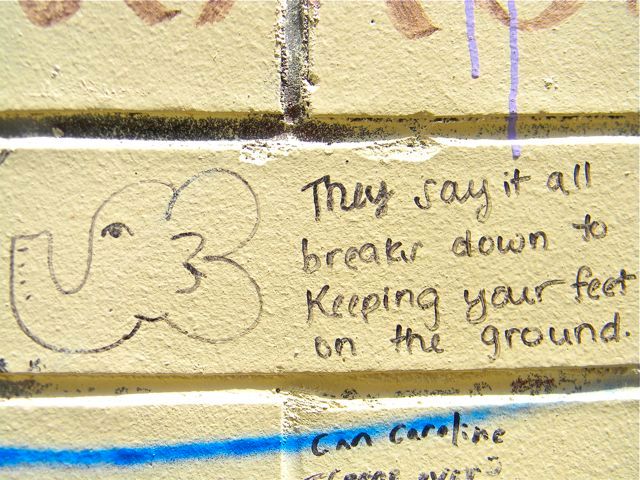 They say it all
breaks down to
Keeping your feet
on the ground.
Can Caroline
come over